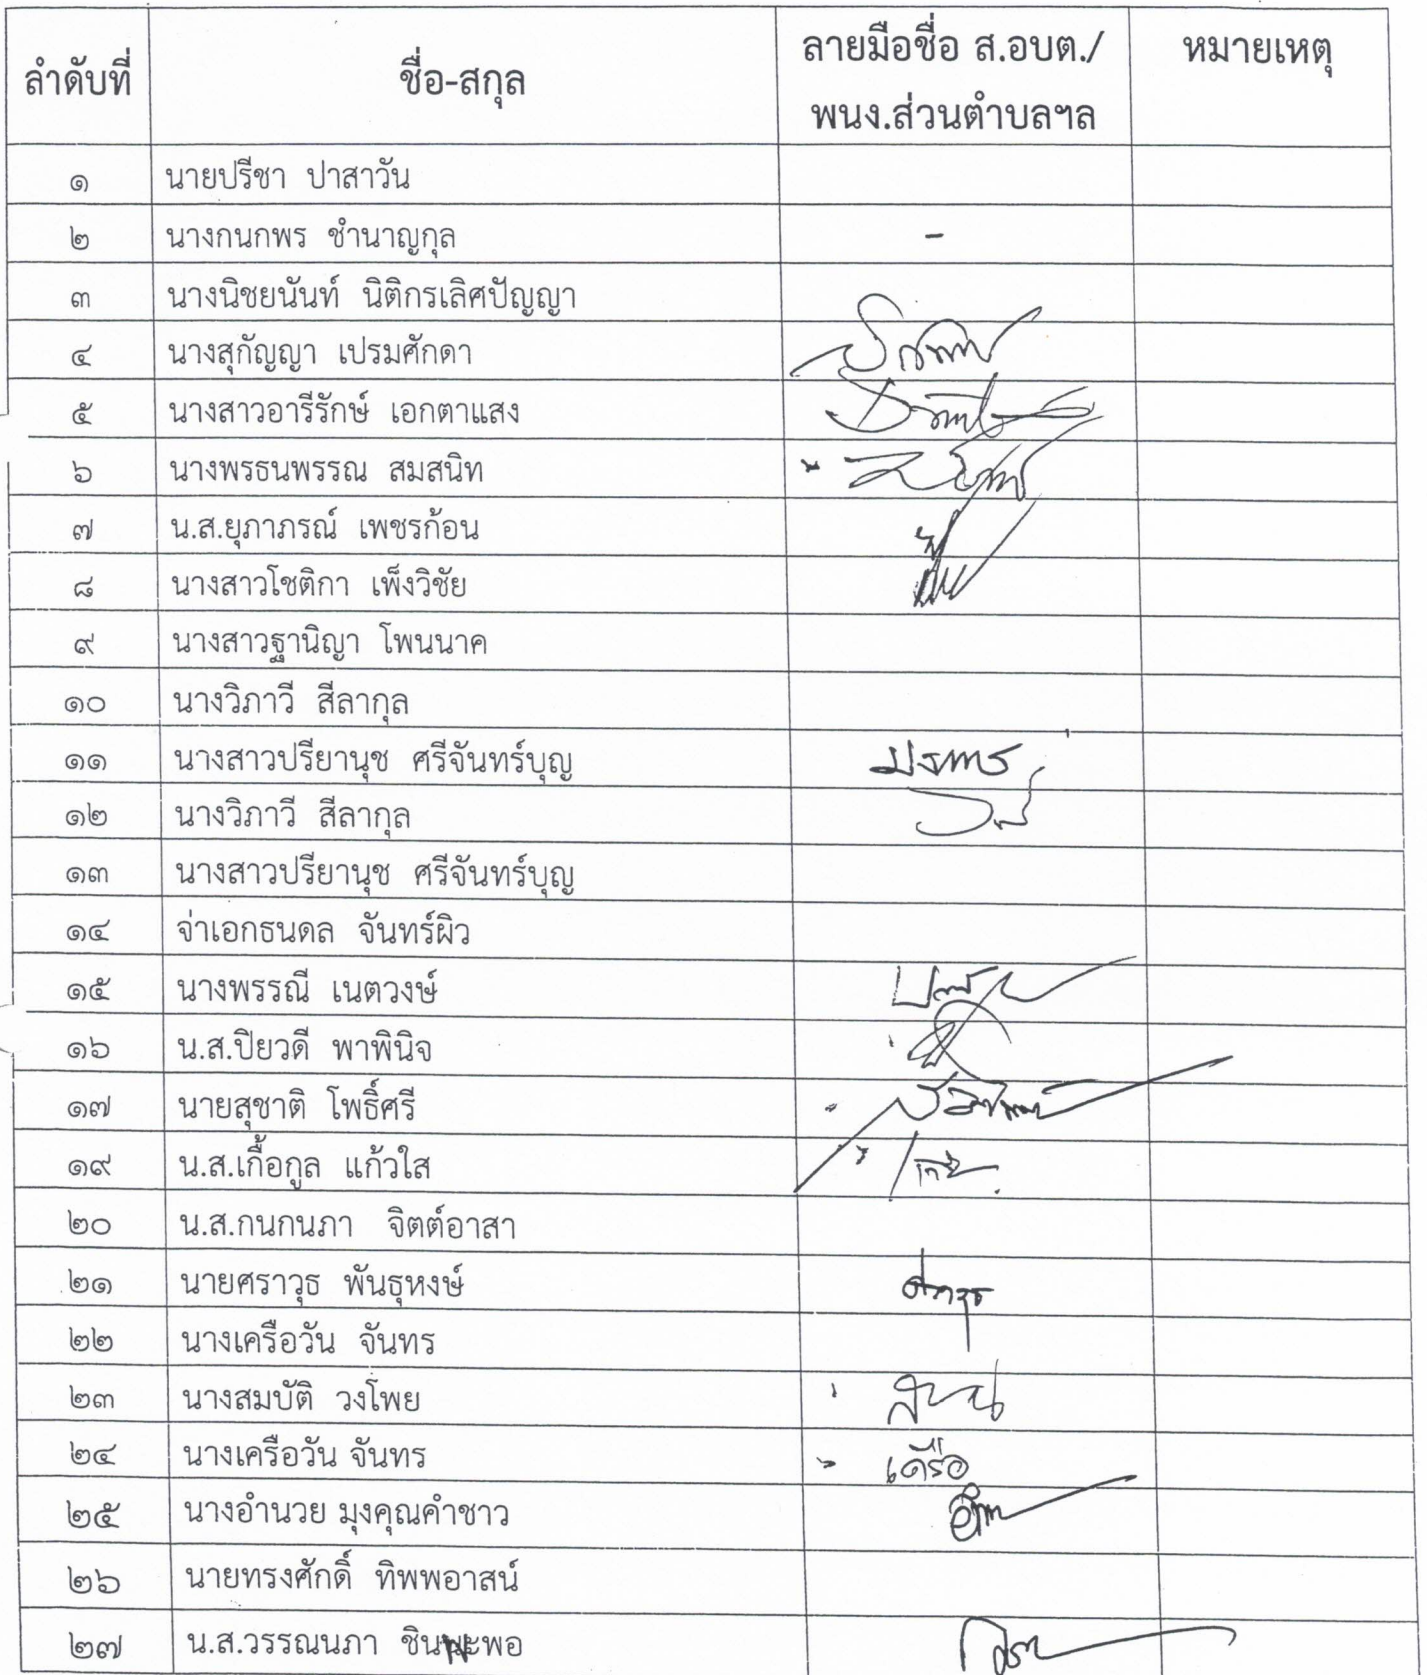 ลำดับที่ ชื่อ-สกุล ลายมือชื่อ ส.อบต./ หมายเหตุ
พนง.ส่วนตำบลฯล
๑ นายปรีชา ปาสาวัน
๒ นางกนกพร ชำนาญกุล -
๓ นางนิชยนันท์ นิติกรเลิศปัญญา
๔ นางสุกัญญา เปรมศักดา
๕ นางสาวอารีรักษ์ เอกตาแสง
๖ นางพรธนพรรณ สมสนิท
๗ น.ส.ยุภาภรณ์ เพชรก้อน
๘ นางสาวโชติกา เพ็งวิชัย
๙ นางสาวฐานิญา โพนนาค
๑๐ นางวิภาวี สีลากุล
๑๑ นางสาวปรียานุช ศรีจันทร์บุญ
๑๒ นางวิภาวี สีลากุล
๑๓ นางสาวปรียานุช ศรีจันทร์บุญ
๑๔ จ่าเอกธนดล จันทร์ผิว
๑๕ นางพรรณี เนตวงษ์
๑๖ น.ส.ปิยวดี พาพินิจ
๑๗ นายสุชาติ โพธิ์ศรี
๑๙ น.ส.เกื้อกูล แก้วใส
๒๐ น.ส.กนกนภา จิตต์อาสา
๒๑ นายศราวุธ พันธุหงษ์ ศราวุธ
๒๒ นางเครือวัน จันทร
๒๓ นางสมบัติ วงโพย
๒๔ นางเครือวัน จันทร เครือ
๒๕ นางอำนวย มุงคุณคำชาว
๒๖ นายทรงศักดิ์ ทิพพอาสน์
๒๗ น.ส.วรรณนภา